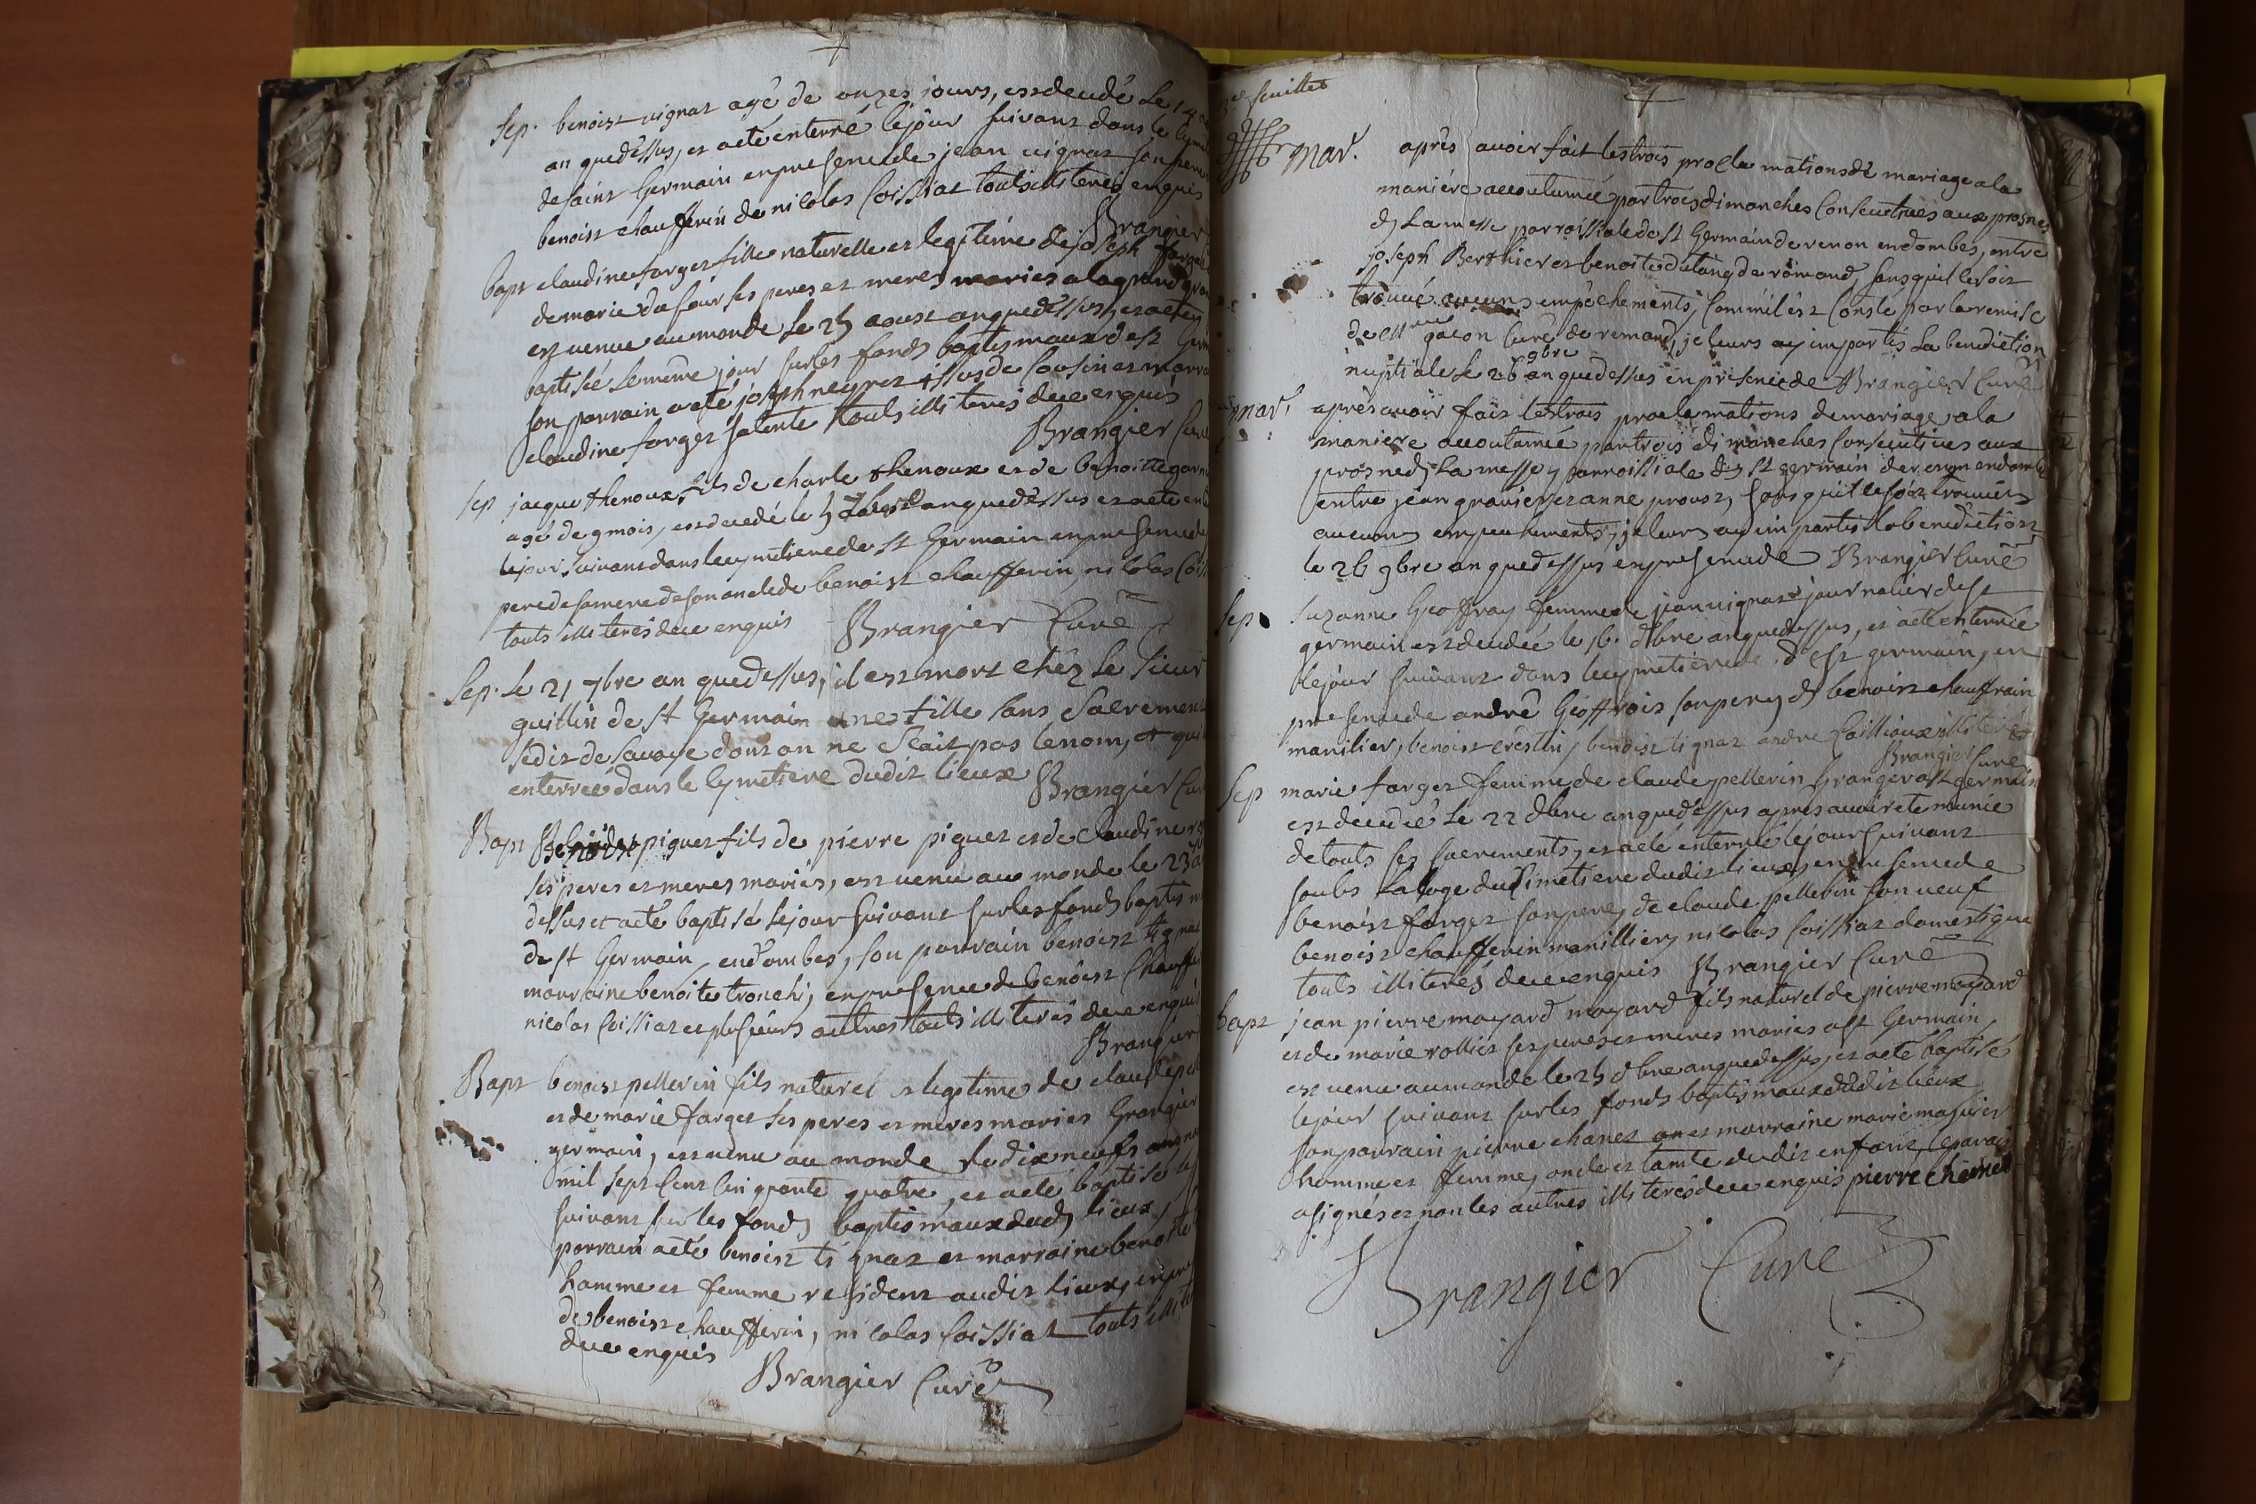 Sep. benoist vignat agé de onzes jours, est decedé le 14
an quedessus, et a eté enterré le jour suivant dans le cyme
de saint Germain en presence de jean vignat son pere
benoist chaufferin de nicolas Coissiat touts illiterés enquis
Brangier
bapt claudine farget fille naturelle et legitime de joseph farget
de marie dufour ses peres et meres mariés a la grand gran
est venue au monde le 25 aoust an quedessus, et a eté
baptisée le même jour sur les fonds baptismaux de st Germ
son parrain a eté joseph neyret issus de Cousin et marra
claudine farget sa tente touts illiterés de ce enquis
Brangier Curé
Sep jacque thenoux, fils de charle thenoux et de benoitte
agé de 9 mois, est decedé le 5 an quedessus et a eté en
le jour suivant dans le cymetiere de st Germain en presence de
pere de sa mere de son oncle de benoist chaufferin, nicolas Cois
touts illiterés de ce enquis Brangier Curé
Sep. Le 21 7bre an quedessus, il est mort chéz Le Sieur
guillin de st Germain une fille sans Sacrement
se dit de Savoye dont on ne sçait pas le nom, et qui
enterrée dans le cymetiere dudit lieux Brangier Curé
Bapt Benoist piquet fils de pierre piquet et de claudine
ses peres et meres mariés, est venu au monde le 23
dessus et a eté baptisé le jour suivant sur les fonds baptism
de st Germain en dombes, son parrain benoist tignat
marraine benoite tronchi, en presence de benoist Chauffe
nicolas Coissiat et plusieurs autres touts illiterés de ce enquis
Brangier
Bapt benoist pellerin fils naturel et legitime de claude pell
et de marie farget ses peres et meres mariés Grangier
germain, est venu au monde le dix neufs
mil sept Cent Cinquante quatre, et a eté baptisé le
suivant sur les fonds baptismaux dudt lieux,
parrain a eté benoist tignat et marraine benoite
homme et femme residents audit lieux, en pre
de benoist chaufferin, nicolas Coissiat touts illite
de ce enquis
Brangier Curé
feuillet
Mar. après avoir fait les trois proclamations de mariage a la
maniére accoutumée par trois dimanches Consecutives aux prosnes
de La messe parroissiale de st Germain de renon en dombes, entre
joseph Berthier et benoite dutang de romand, sans quil le soit
trouvé aucuns empêchements, Comme il est Consté par la remise
de Mre gacon Curé de romand, je leurs ay impartis La benediction
nuptiale le 26 9bre an quedessus en presence de Brangier Curé
Mar. après avoir fait les trois proclamations de mariage, a la
maniere accoutumée, par trois dimanches Consecutives aux
prosne de La messe, parroissiale de st germain de renom en dombe
entre jean gravier et anne proust, sans quil le soit trouvées
aucuns empechements, je leurs ay impartis la benediction
le 26 9bre an quedessus en presence de Brangier Curé
Sep. Suzanne Geoffray femme de jean vignat journalier de st
germain est decedée le 16. dbre an quedessus, et a eté enterrée
le jour suivant dans le cymetiere de st germain, en
presence de andré Geoffrois, son pere, de benoist chauffrain
marilier, benoist crestin, benoist tignat andre Caillioux illiterés
Brangier Curé
Sep marie farget femme de claude pellerin Granger a st germain
est decedée Le 22 dbre an quedessus après avoir eté munie
de touts ses sacrements, et a eté enterrée le jour suivant
soubs la loge du Cimetiere dudit lieux, en presence de
benoist farget son pere, de claude pellerin son veuf
benoist chaufferin marillier, nicolas Coissiat domestique
touts illiterés de ce enquis Brangier Curé
bapt jean pierre mayard mayard fils naturel de pierre mayard
et de marie rollier ses peres et meres mariés a st Germain,
est venu au monde le 25 dbre an quedessus, et a eté baptisé
le jour suivant sur les fonds baptismaux dudit lieux
son parrain pierre chanel et marraine marie
homme et femme, oncle et tante dudit enfant, le parain
a signé et non les autres illiterés de ce enquis pierre chanel
Brangier Curé